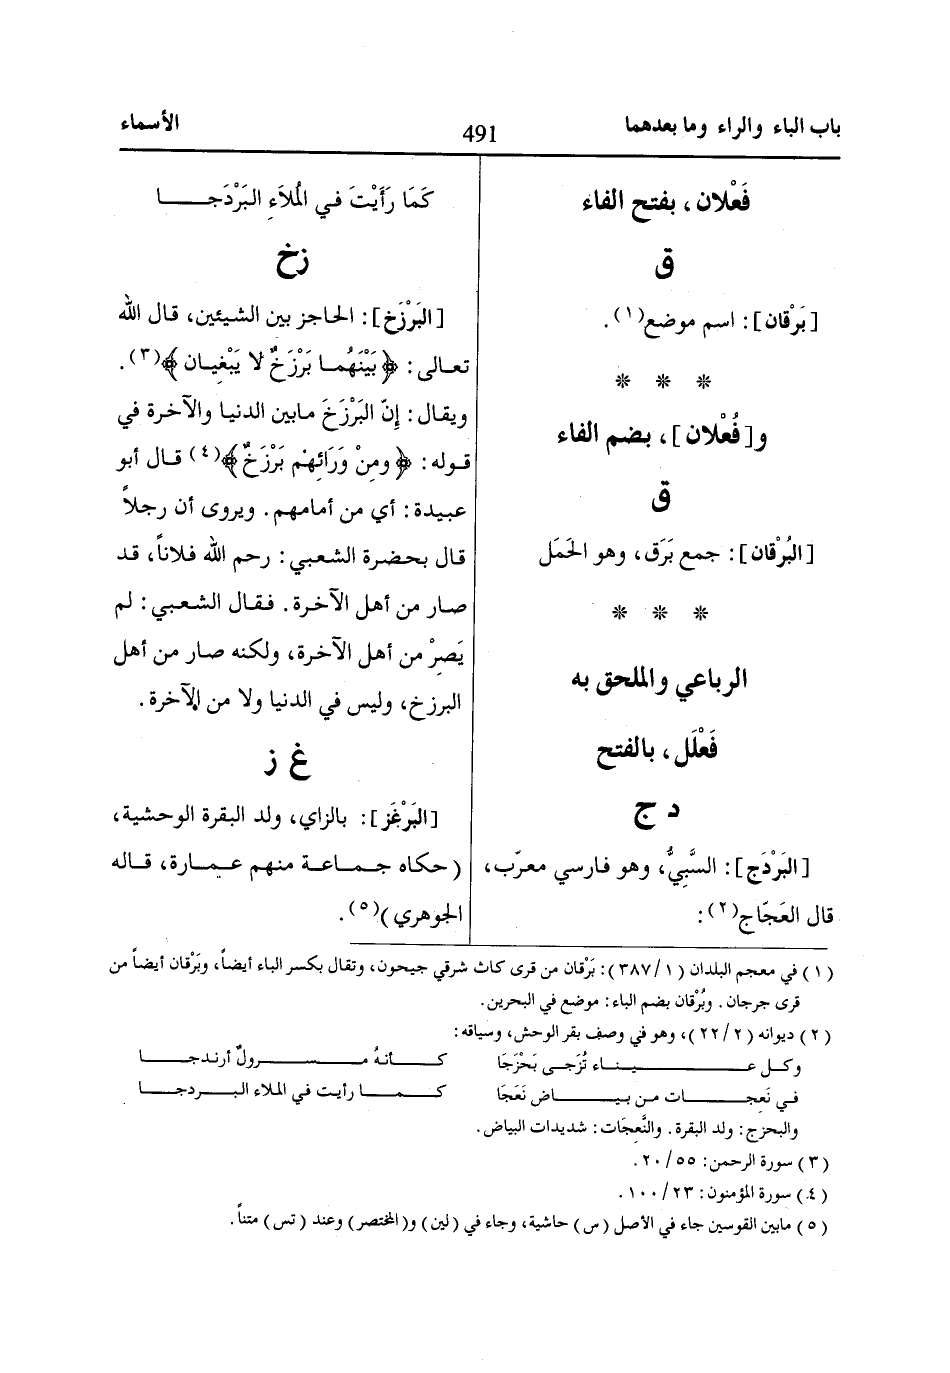 باب الباء والراء وما بعدهما
491
الأسماء
فَعْلان، بفتح الفاء
ق
[بَرْقان]: اسم موضع(١).
* * *
و[فُعْلان]، بضم الفاء
ق
[البُرْقان]: جمع بَرَق، وهو الحَمَل
* * *
الرباعي والملحق به
فَعْلَل، بالفتح
د ج
[البَرْدَج]: السَّبيُّ، وهو فارسي معرّب،
قال العَجّاج(٢):
كَمَا رَأَيْتَ في المُلاَءِ البَرْدَجـــا
زخ
[البَرْزَخ]: الحاجز بين الشيئين، قال الله
تعالى: ﴿بَيْنَهُما بَرْزَخٌ لا يَبْغيان﴾(٣).
ويقال: إنّ البَرْزَخَ مابين الدنيا والآخرة في
قوله: ﴿ومنْ وَرَائِهْم بَرْزَخٌ﴾(٤) قال أبو
عبيدة: أي من أمامهم. ويروى أن رجلاً
قال بحضرة الشعبي: رحم الله فلاناً، قد
صار من أهل الآخرة. فقال الشعبي: لم
يَصِرْ من أهل الآخرة، ولكنه صار من أهل
البرزخ، وليس في الدنيا ولا من الآخرة.
غ ز
[البَرْغَز]: بالزاي، ولد البقرة الوحشية،
(حكاه جماعة منهم عمارة، قاله
الجوهري)(٥).
(١) في معجم البلدان (٣٨٧/١): بَرْقان من قرى كاث شرقي جيحون، وتقال بكسر الباء أيضاً، وبَرْقان أيضاً من
قرى جرجان. وبُرْقان بضم الباء: موضع في البحرين.
(٢) ديوانه (٢٢/٢)، وهو في وصف بقر الوحش، وسياقه:
وكل عـــيناء تُزَجي بَحْزَجَا كـأنهُ مـــسـرولٌ أرندجـا
في نَعجـــات من بيـــاض نَعَجَا كـمـــا رأيت في الملاء البـــردجـا
والبحزج: ولد البقرة. والنَّعجَات: شديدات البياض.
(٣) سورة الرحمن: ٢٠/٥٥.
(٤) سورة المؤمنون: ١٠٠/٢٣.
(٥) مابين القوسين جاء في الأصل (س) حاشية، وجاء في (لين) و(المختصر) وعند (تس) متناً.